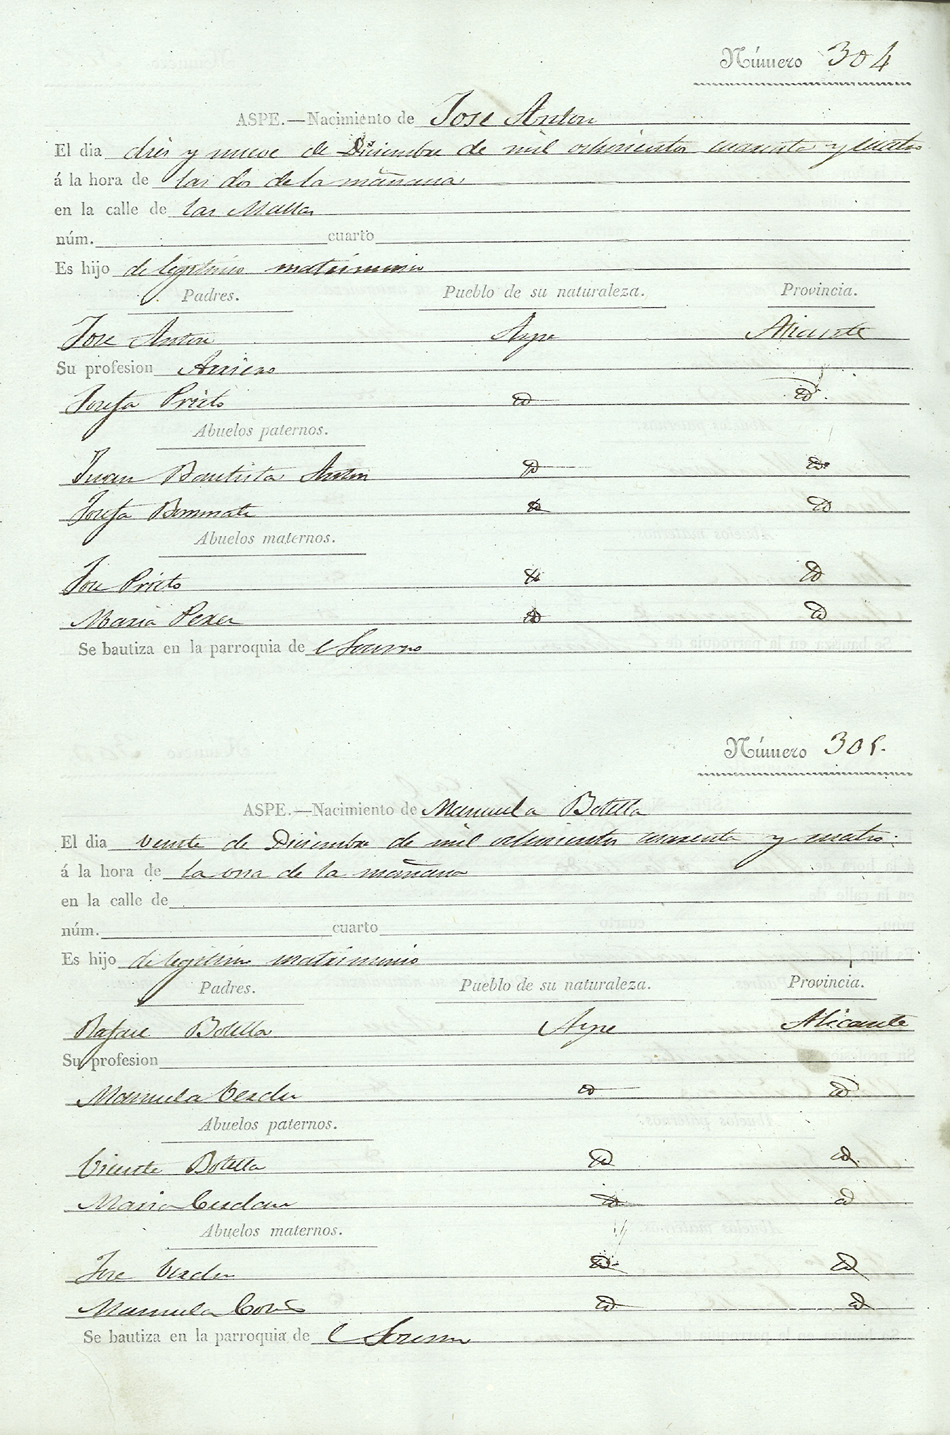 Número 304
ASPE.—Nacimiento de Jose Anton
El dia diez y nueve de Diciembre de mil ochocientos cuarenta y cuatro
á la hora de las dos de la mañana
en la calle de las Mallas
núm. cuarto
Es hijo de legitimo matrimonio
Padres. Pueblo de su naturaleza. Provincia.
Jose Anton Aspe Alicante
Su profesion Arriero
Josefa Prieto id id.
Abuelos paternos.
Juan Bautista Anton id id
Josefa id id
Abuelos maternos.
Jose Prieto id id
Maria Perez id id
Se bautiza en la parroquia de el Socorro
Número 305.
ASPE.—Nacimiento de Manuela Botella
El dia veinte de Diciembre de mil ochocientos cuarenta y cuatro.
á la hora de la una de la mañana
en la calle de
núm. cuarto
Es hijo de legitimo matrimonio
Padres. Pueblo de su naturaleza. Provincia.
Rafael Botella Aspe Alicante
Su profesion
Manuela Verdu id id
Abuelos paternos.
Vicente Botella id id
Maria id id
Abuelos maternos.
Jose Verdu id id
Manuela id id
Se bautiza en la parroquia de el Socorro